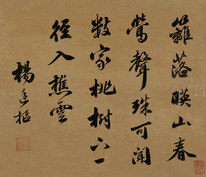 籬落暎山春
鶯聲殊可聞
數家桃樹下一
徑入樵雲
楊廷樞